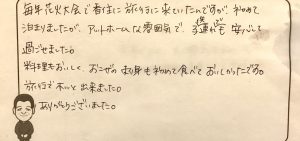 毎年花火大会で春住に旅行に来ていたんですが、初めて
泊まりましたが、アットホームな雰囲気で、子連れも安心して
過ごせました。
料理もおいしく、おこぜのお刺身も初めて食べておいしかったです。
旅行で 出来ました。
ありがとうございました。